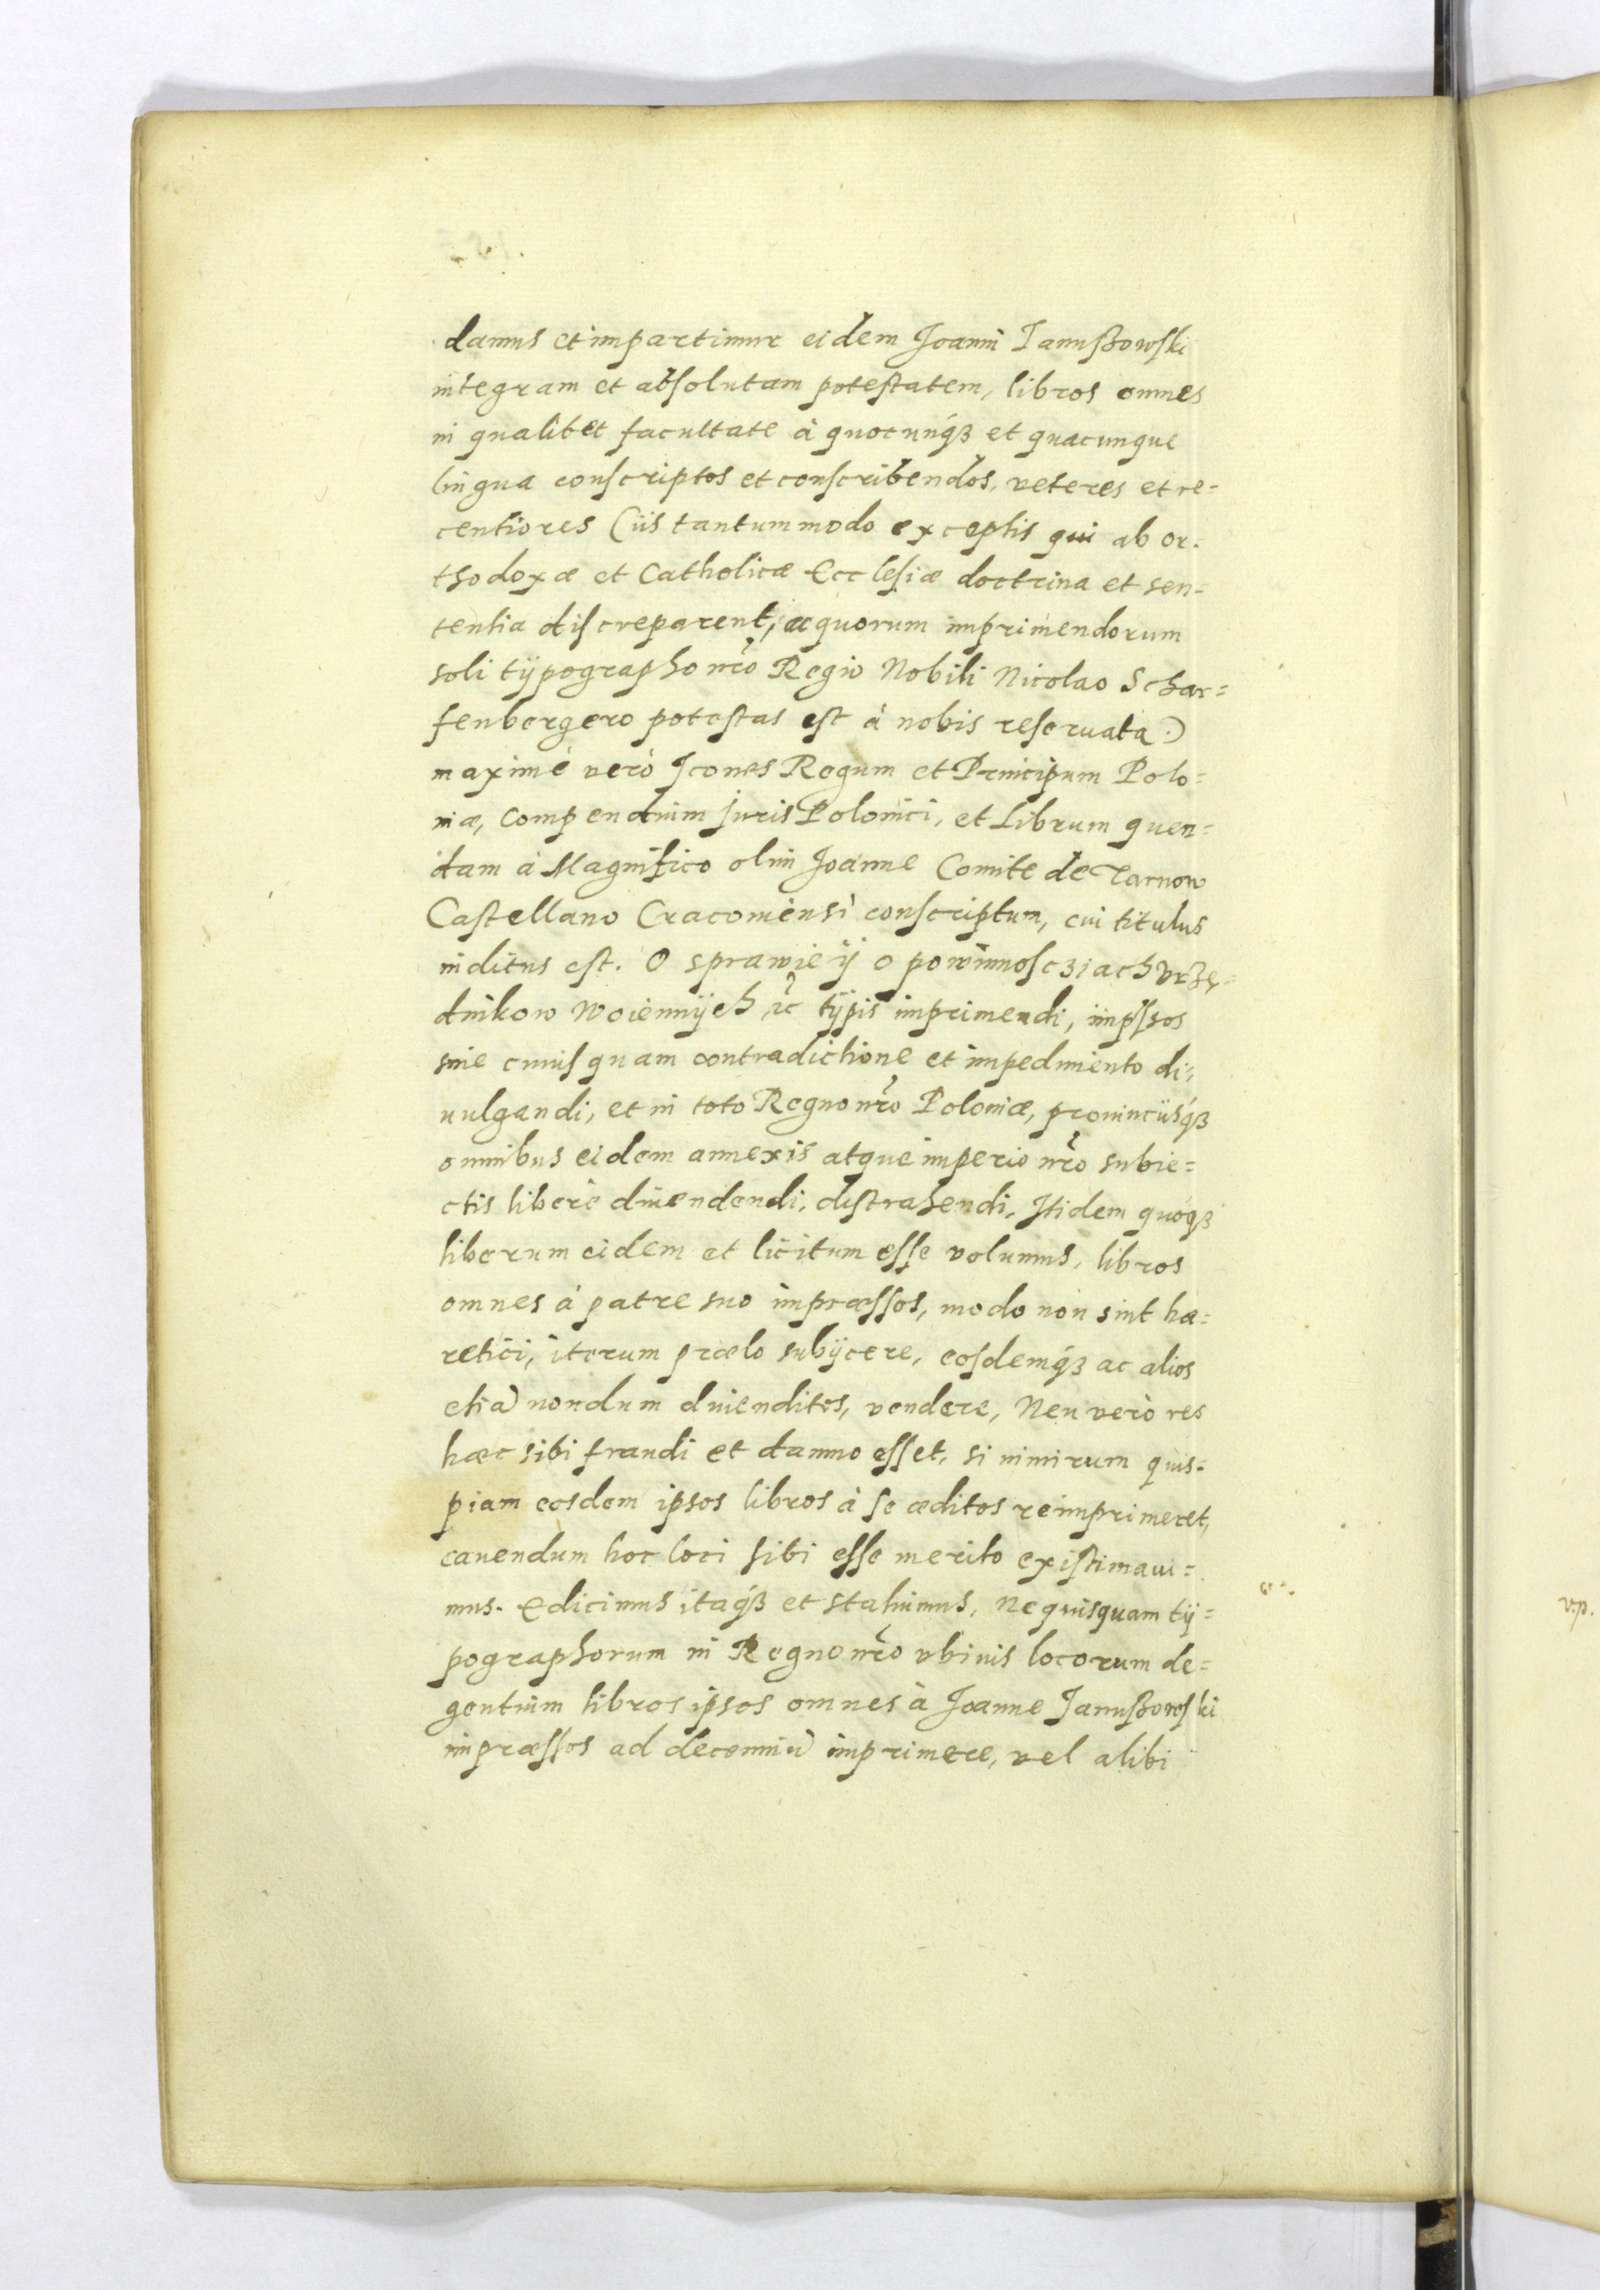 damus et impartimur eidem Joanni Janußowski
integram et absolutam potestatem, libros omnes
in qualibet facultate à quocunq́ꝫ et quacunque
lingua conscriptos et conscribendos, veteres et re=
centiores (iis tantummodo exceptis qui ab or=
thodoxæ et Catholicæ Ecclesiæ doctrina et sen=
tentia discreparent, ac quorum imprimendorum
soli typographo nr̃o Regio Nobili Nicolao Schar=
fenbergero potestas est à nobis reseruata.)
maximè verò Icones Regum et Principum Polo=
niæ, Compendium juris Polonici, et Librum quen=
dam à Magnifico olim Joanne Comite de Tarnow
Castellano Cracouiensi conscriptum, cui titulus
inditus est. O sprawie ÿ o powinnosczjach vrzę=
dnikow Woiennÿch, ꝛc̃ tÿpis imprimendi, imp̃ssos
sine cuiusquam contradictione et impedimento di=
uulgandi, et in toto Regno nr̃o Poloniæ, prouinciisq́ꝫ
omnibus eidem annexis atque imperio nr̃o subie=
ctis liberè diuendendi, distrahendi, Itidem quoq́ꝫ
liberum eidem et licitum esse volumus, libros
omnes à patre suo impræssos, modo non sint hæ=
retici, iterum prælo subÿcere, eosdemq́ꝫ ac alios
etiã nondum diuenditos, vendere, Neu verò res
hæc sibi fraudi et damno esset, si nimirum quis=
piam eosdem ipsos libros à se æditos reimprimeret,
cauendum hoc loci sibi esse merito existimaui=
mus. Edicimus itaq́ꝫ et statuimus, ne quisquam tÿ=
pographorum in Regno nr̃o vbiuis locorum de=
gentium libros ipsos omnes à Joanne Janußowski
impræssos ad decenniũ imprimere, vel alibi
v.p.